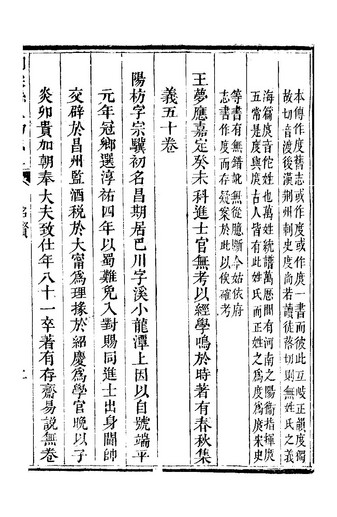 本傳作度舊志或作度或作庹一書而彼此互岐正韻度徒
故切音渡後漢荆州刺史度尚若讀徒落切則無姓氏之義
海篇庹音佗姓也萬姓統譜萬厯間有河南之陽衛指揮庹
五常是度與庹古人皆有此姓氏而正姓之為度為庹宋史
等書有無錯訛無從臆斷今姑依府
志書作度而存疑案於此以俟確考
王夢應嘉定癸未科進士官無考以經學鳴於時著有春秋集
義五十卷
陽枋字宗驥初名昌期居巴川字溪小龍潭上因以自號端平
元年冠鄉選淳祐四年以蜀難免入對賜同進士出身閫帥
交辟於昌州監酒税於大甯為理掾於紹慶為學官晚以子
炎卯貴加朝奉大夫致仕年八十一卒著有存齋易說無卷
名賢